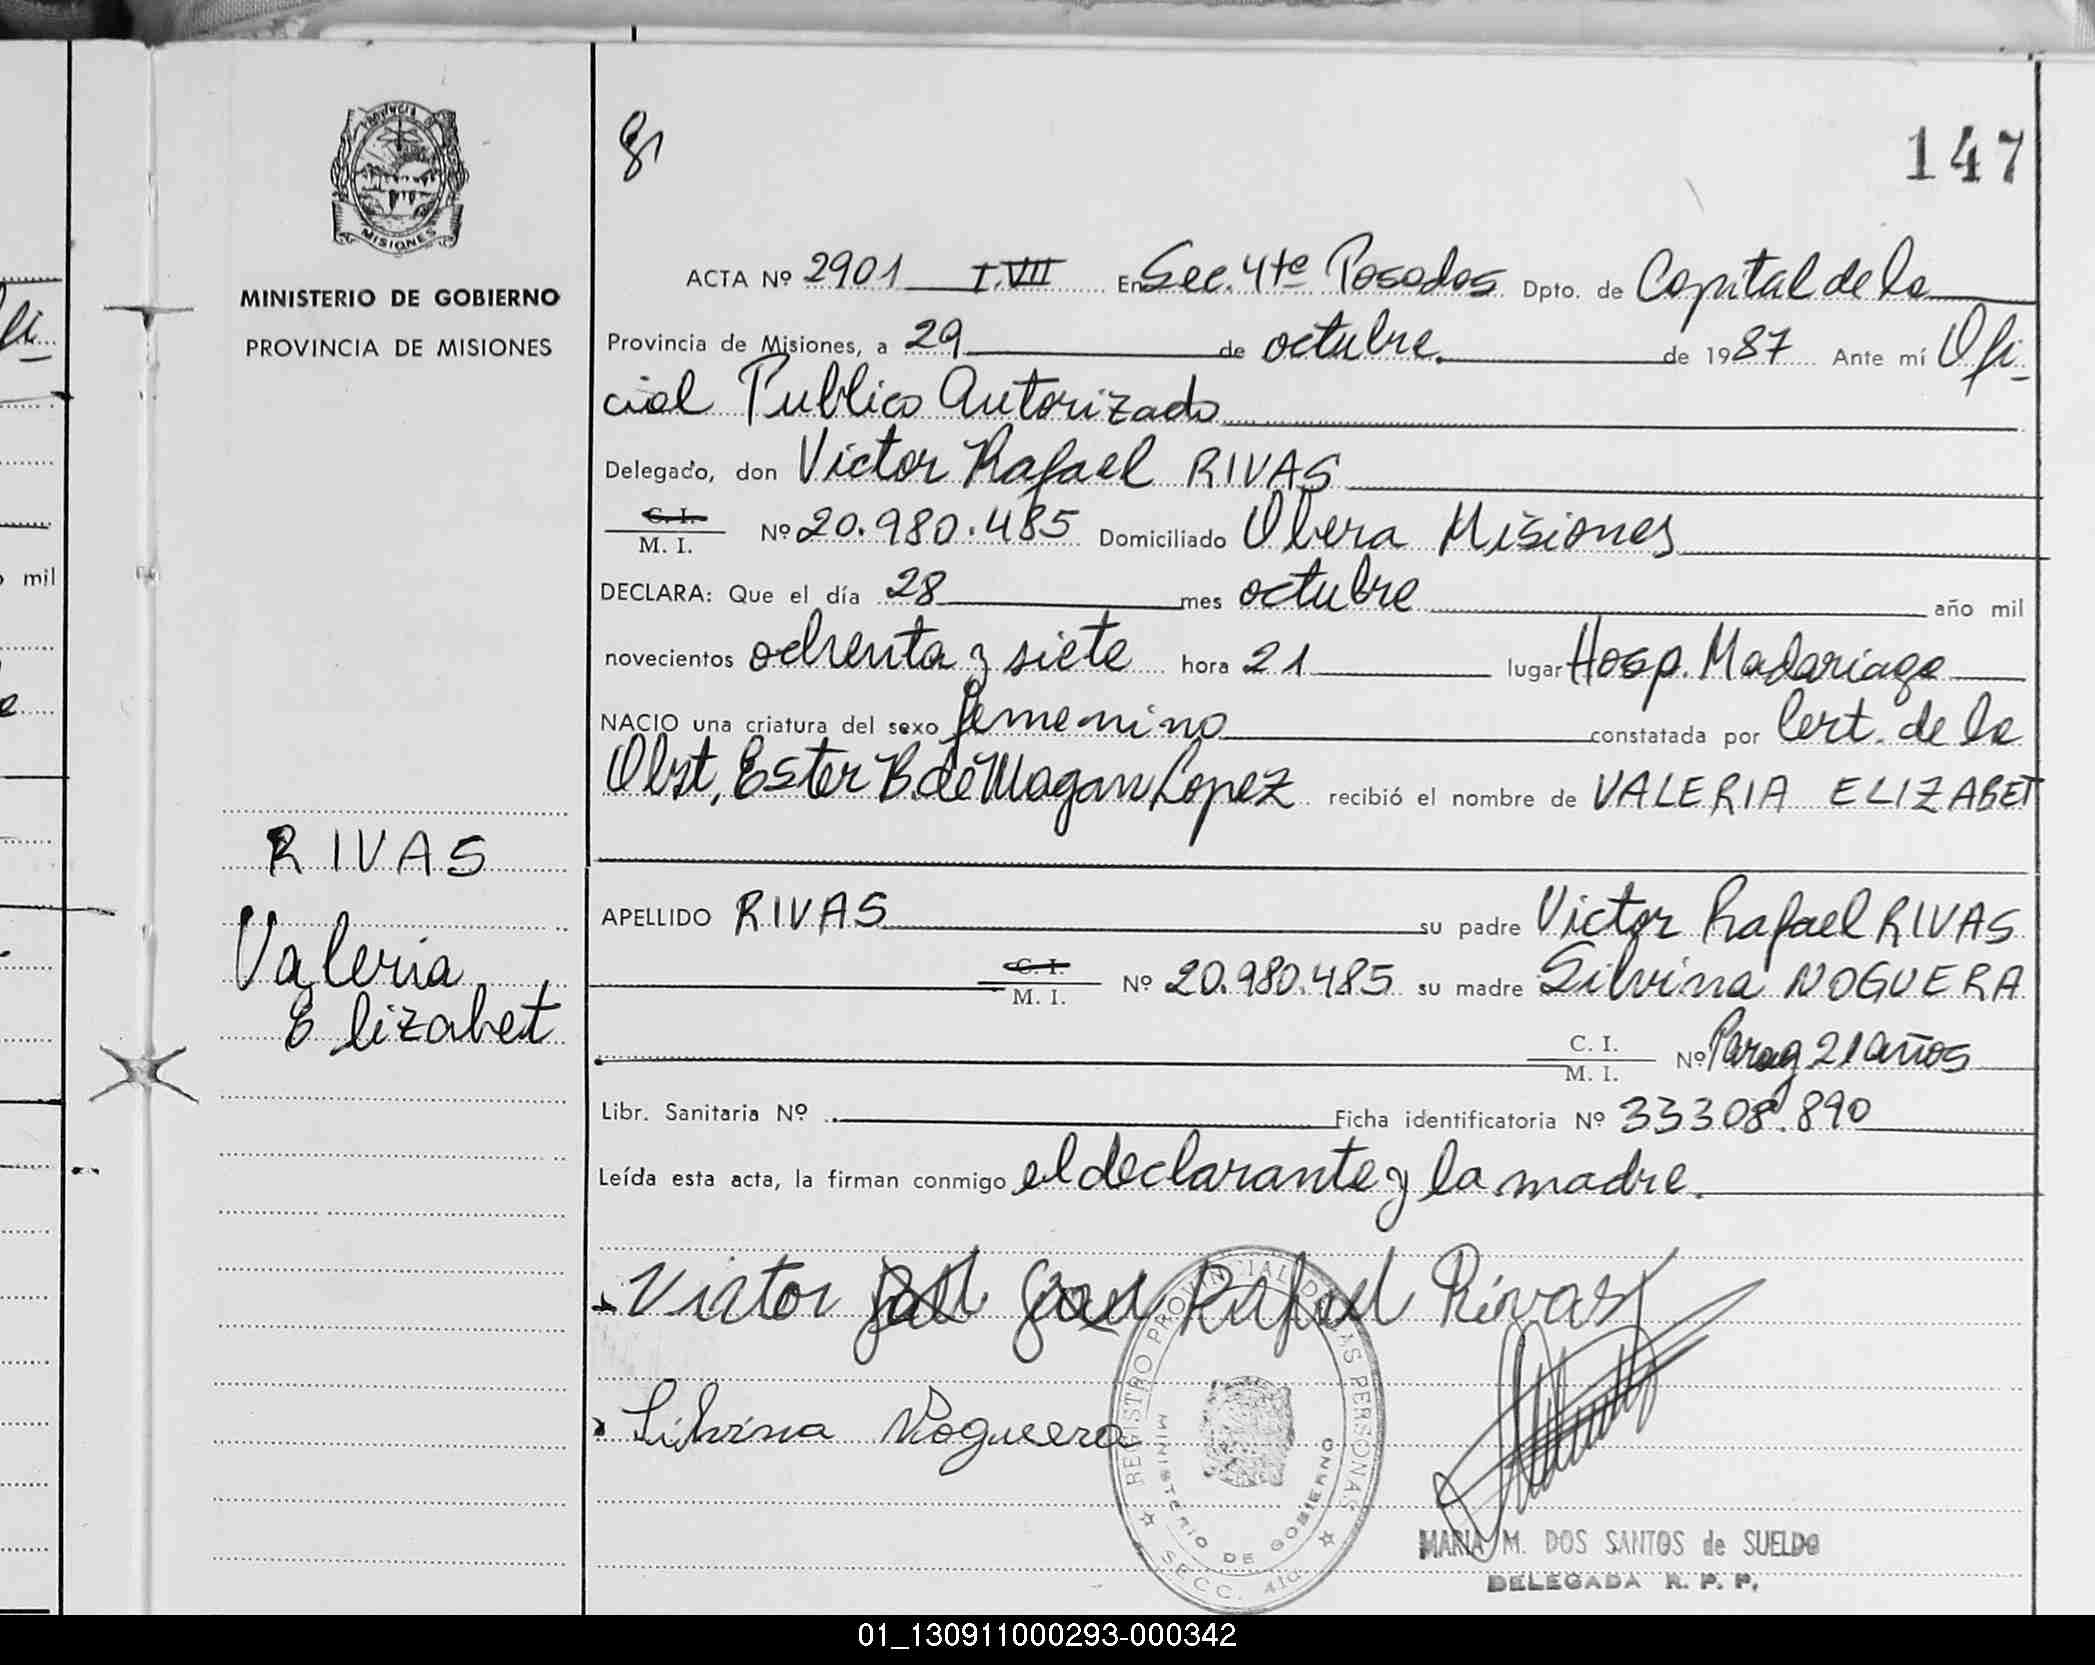 147
PROVINCIA
MISIONES
MINISTERIO DE GOBIERNO
PROVINCIA DE MISIONES
RIVAS
Valeria
Elizabet
ACTA Nº 2901 T.VII En Sec. 4ta Posadas Dpto. de Capital de la
Provincia de Misiones, a 29 de octubre de 1987 Ante mí Ofi-
cial Publico Autorizado
Delegado, don Victor Rafael RIVAS
C. I.
M. I. Nº 20.980.485 Domiciliado Obera Misiones
DECLARA: Que el día 28 mes octubre año mil
novecientos ochenta y siete hora 21 lugar Hosp. Madariaga
NACIO una criatura del sexo femenino constatada por Cert. de la
Obst, Ester B. de Magan Lopez recibió el nombre de VALERIA ELIZABET
APELLIDO RIVAS su padre Victor Rafael RIVAS
C. I.
M. I. Nº 20.980.485 su madre Silvina NOGUERA
C. I.
M. I. Nº Parag 21 años
Libr. Sanitaria Nº Ficha identificatoria Nº 33308.890
Leída esta acta, la firman conmigo el declarante y la madre.
Victor Rafael Rivas
Silvina Noguera
REGISTRO PROVINCIAL DE LAS PERSONAS
MINISTERIO DE GOBIERNO
SECC. 4ta.
MARIA M. DOS SANTOS de SUELDO
DELEGADA R. P. P.
mil
01_130911000293-000342